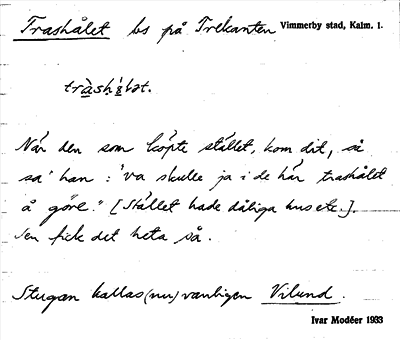 Trashålet bs på Trekanten Vimmerby stad, Kalm. l.
tràshålət.
När den som köpte stället, kom dit, så
sa' han: "va skulle ja i de här trashålet
å göre." [Stället hade dåliga hus etc.].
Sen fick det heta så.
Stugan kallas (nu) vanligen Vilund.
Ivar Modéer 1933